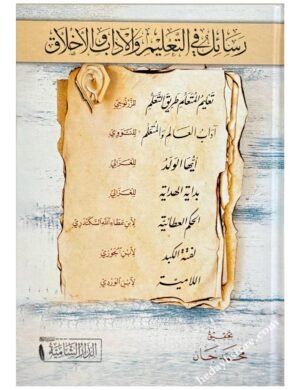 رسائل في التعليم والآداب والأخلاق
تعليم المتعلم طريق التعلم للزرنوجي
آداب العالم والمتعلم للنووي
أيها الولد للغزالي
بداية الهداية للغزالي
الحكم العطائية لابن عطاء الله السكندري
لفتة الكبد لابن الجوزي
اللامية لابن الوردي
تحقيق
محمد جان
الدار الشامية